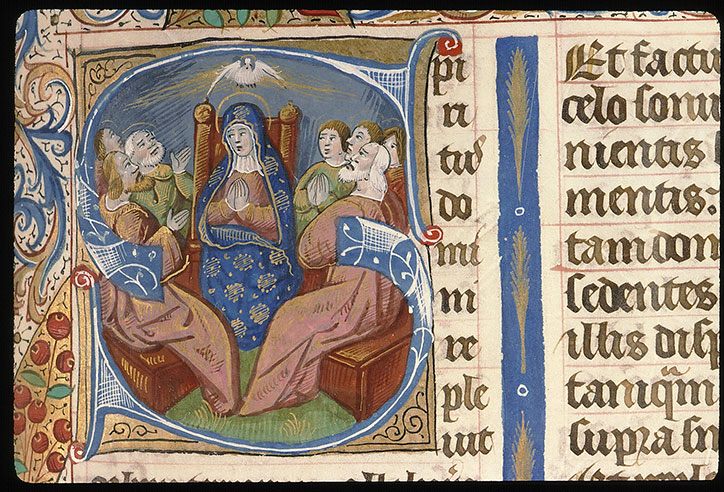 Spi
ri
tus
do
mi
ni
re
ple
uit
Et factu
celo sonu
nientis
mentis:
tam dom
sedentes
illis disp
tamq̃m
supra sin